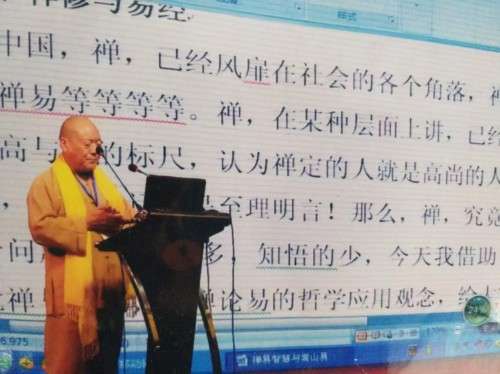 样式
修与易经
中国，禅，已经风扉在社会的各个角落，禅
禅易等等等等。禅，在某种层面上讲，已经
高与的标尺，认为禅定的人就是高尚的人
，至理明言！那么，禅，究竟
问多，知悟的少，今天我借助
禅论易的哲学应用观念，给
6.975